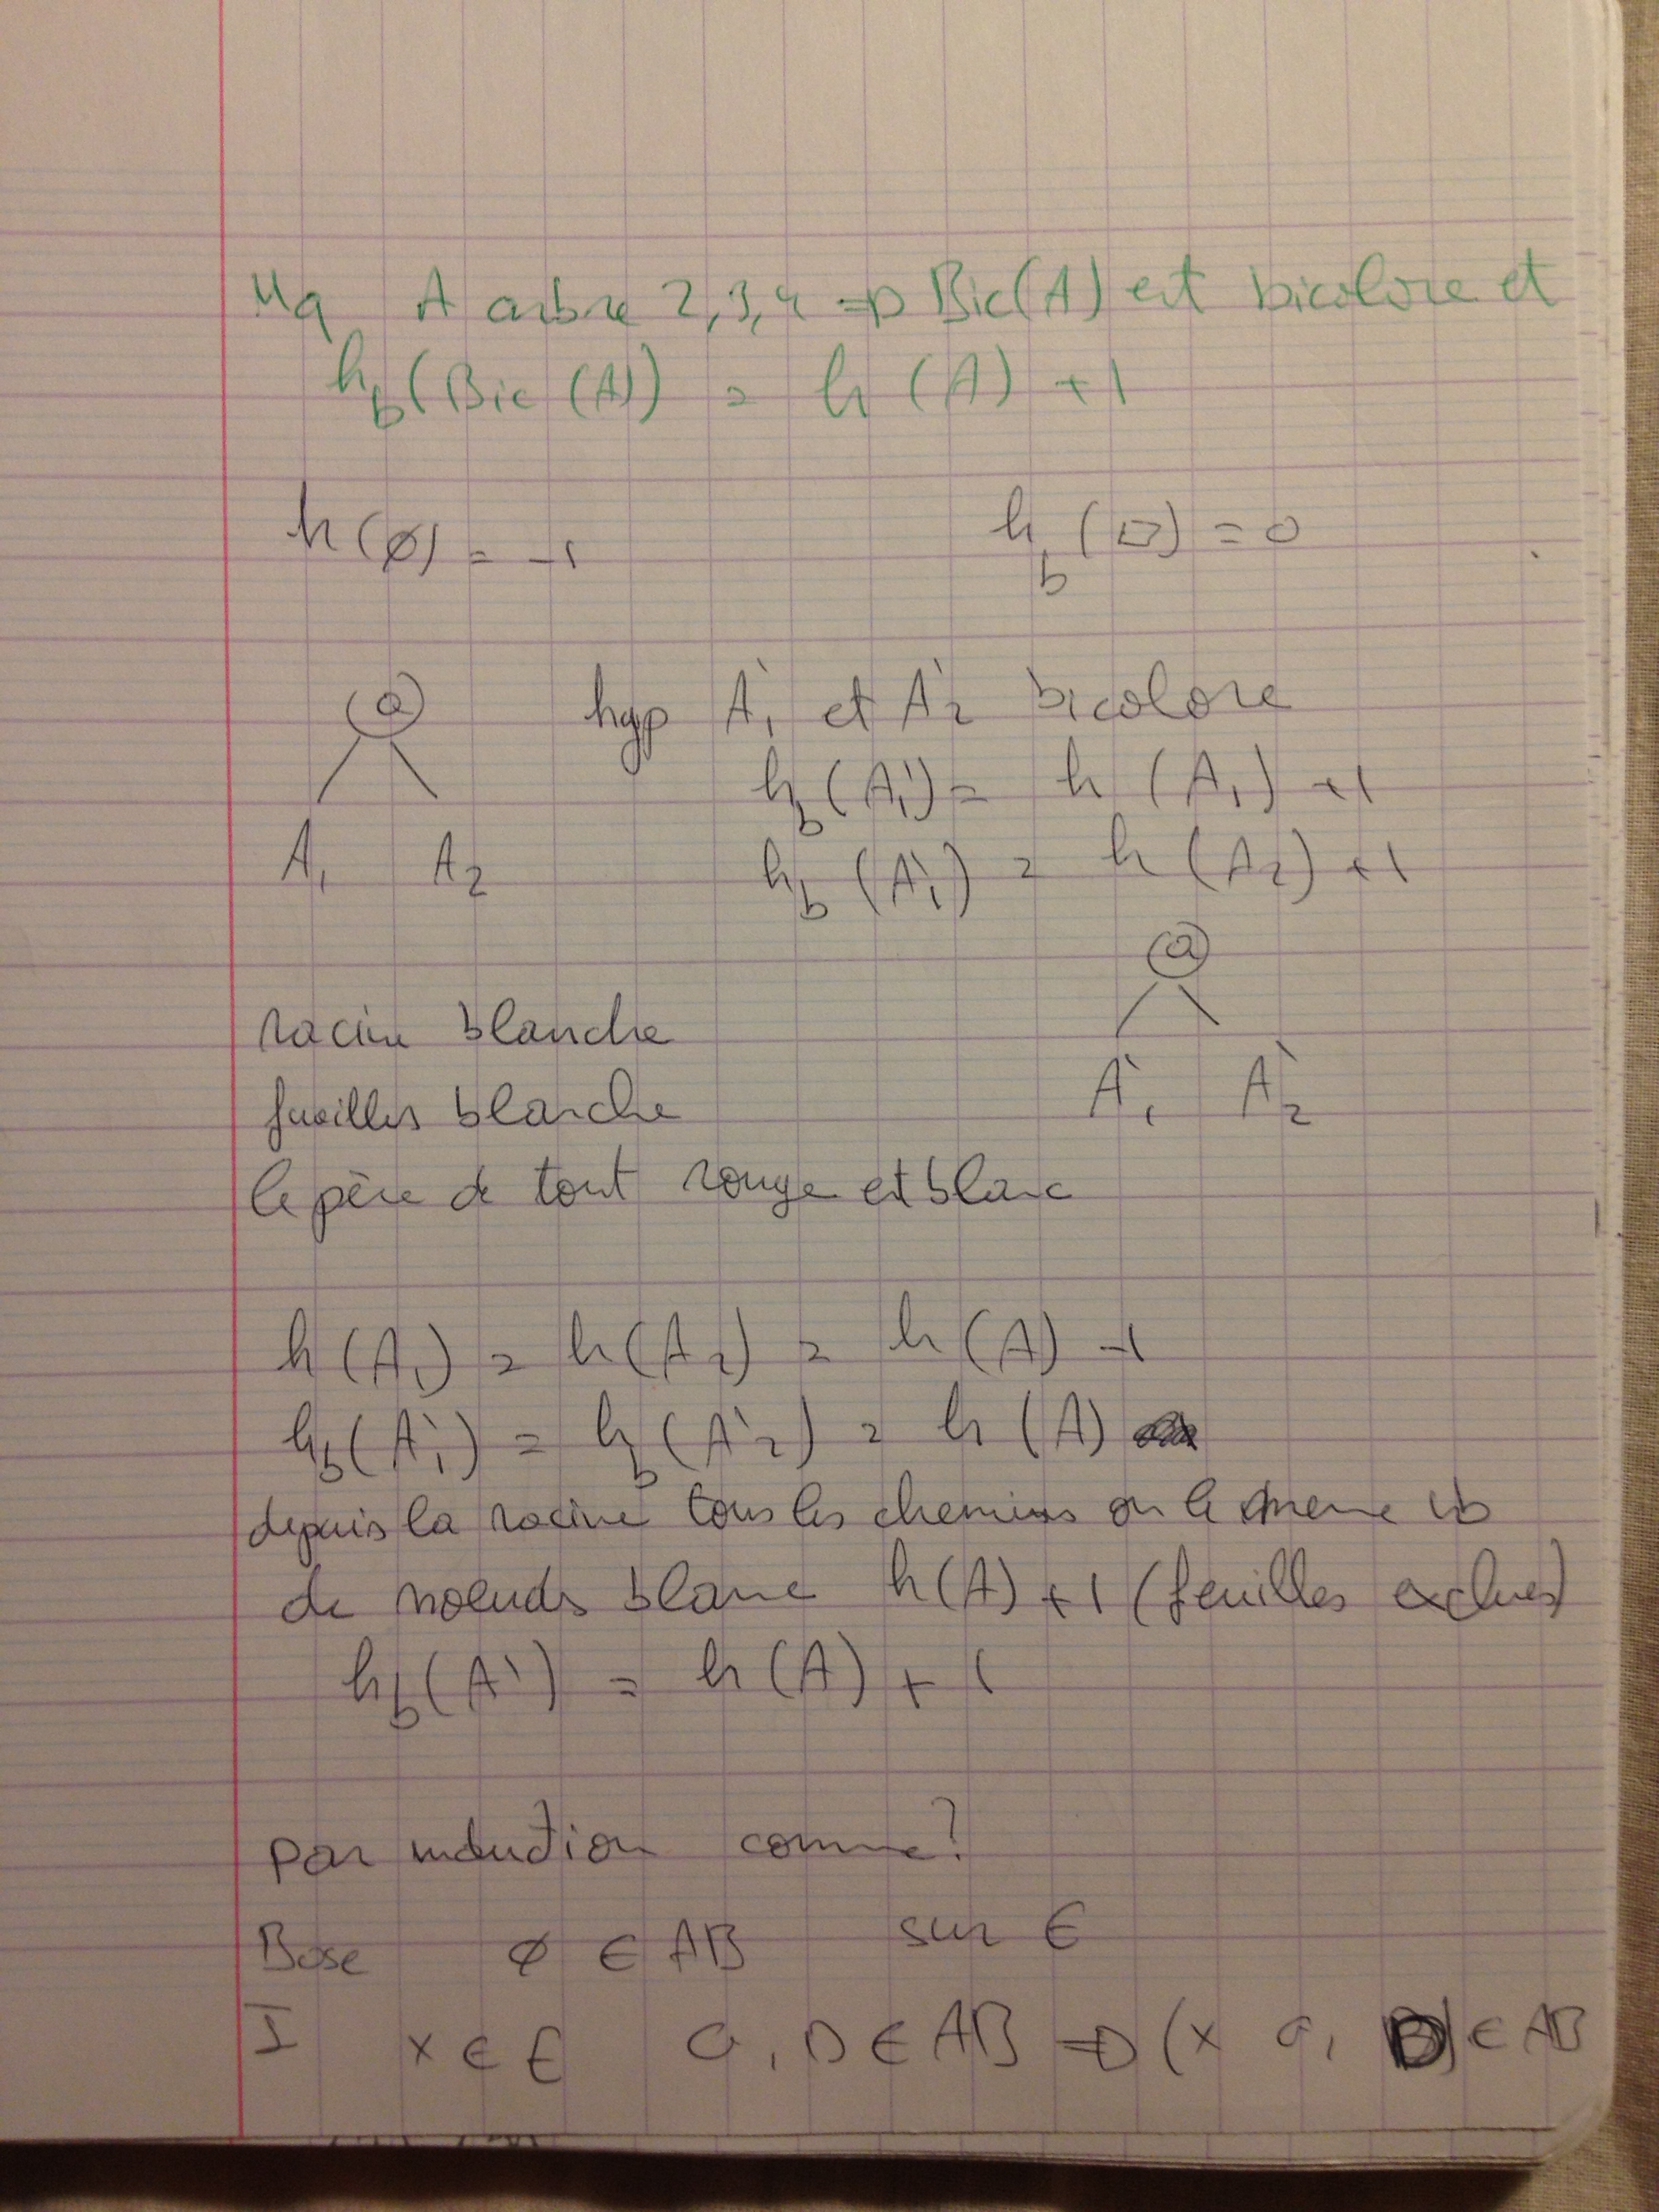 Mq A arbre 2,3,4 => Bic(A) est bicolore et
h_b(Bic(A)) = h(A) + 1
h(∅) = -1 h_b(□) = 0
(a) hyp A'1 et A'2 bicolore
h_b(A'1) = h(A1) + 1
A1 A2 h_b(A'1) = h(A2) + 1
(a)
racine blanche
A'1 A'2
feuilles blanche
le père de tout rouge est blanc
h(A1) = h(A2) = h(A) - 1
h_b(A'1) = h_b(A'2) = h(A)
depuis la racine tous les chemins on le meme nb
de noeuds blanc h(A) + 1 (feuilles exclues)
h_b(A') = h(A) + 1
par induction comme?
Base ∅ ∈ AB sur E
I x ∈ E G, D ∈ AB => (x G, D) ∈ AB